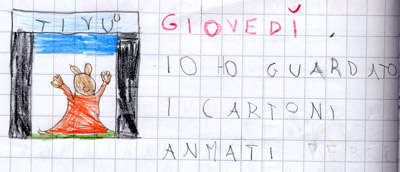 TIVÙ
GIOVEDÌ
IO HO GUARDATO
I CARTONI
ANMATI